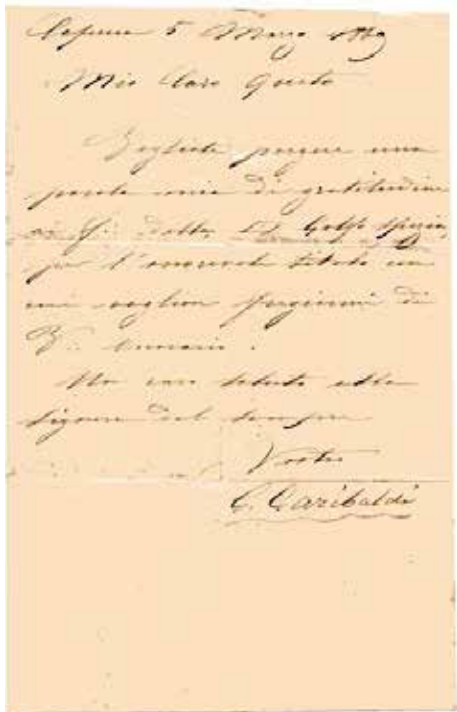 Caprera 5 Marzo
Mio Caro
Vogliate porgere una
parola mia di gratitudine
ai f∴ della Golfo Spezia,
per l'onorevole titolo con
cui voglion fregiarmi di
V∴ onorario.
Un caro saluto alla
Signora dal sempre
Vostro
G. Garibaldi